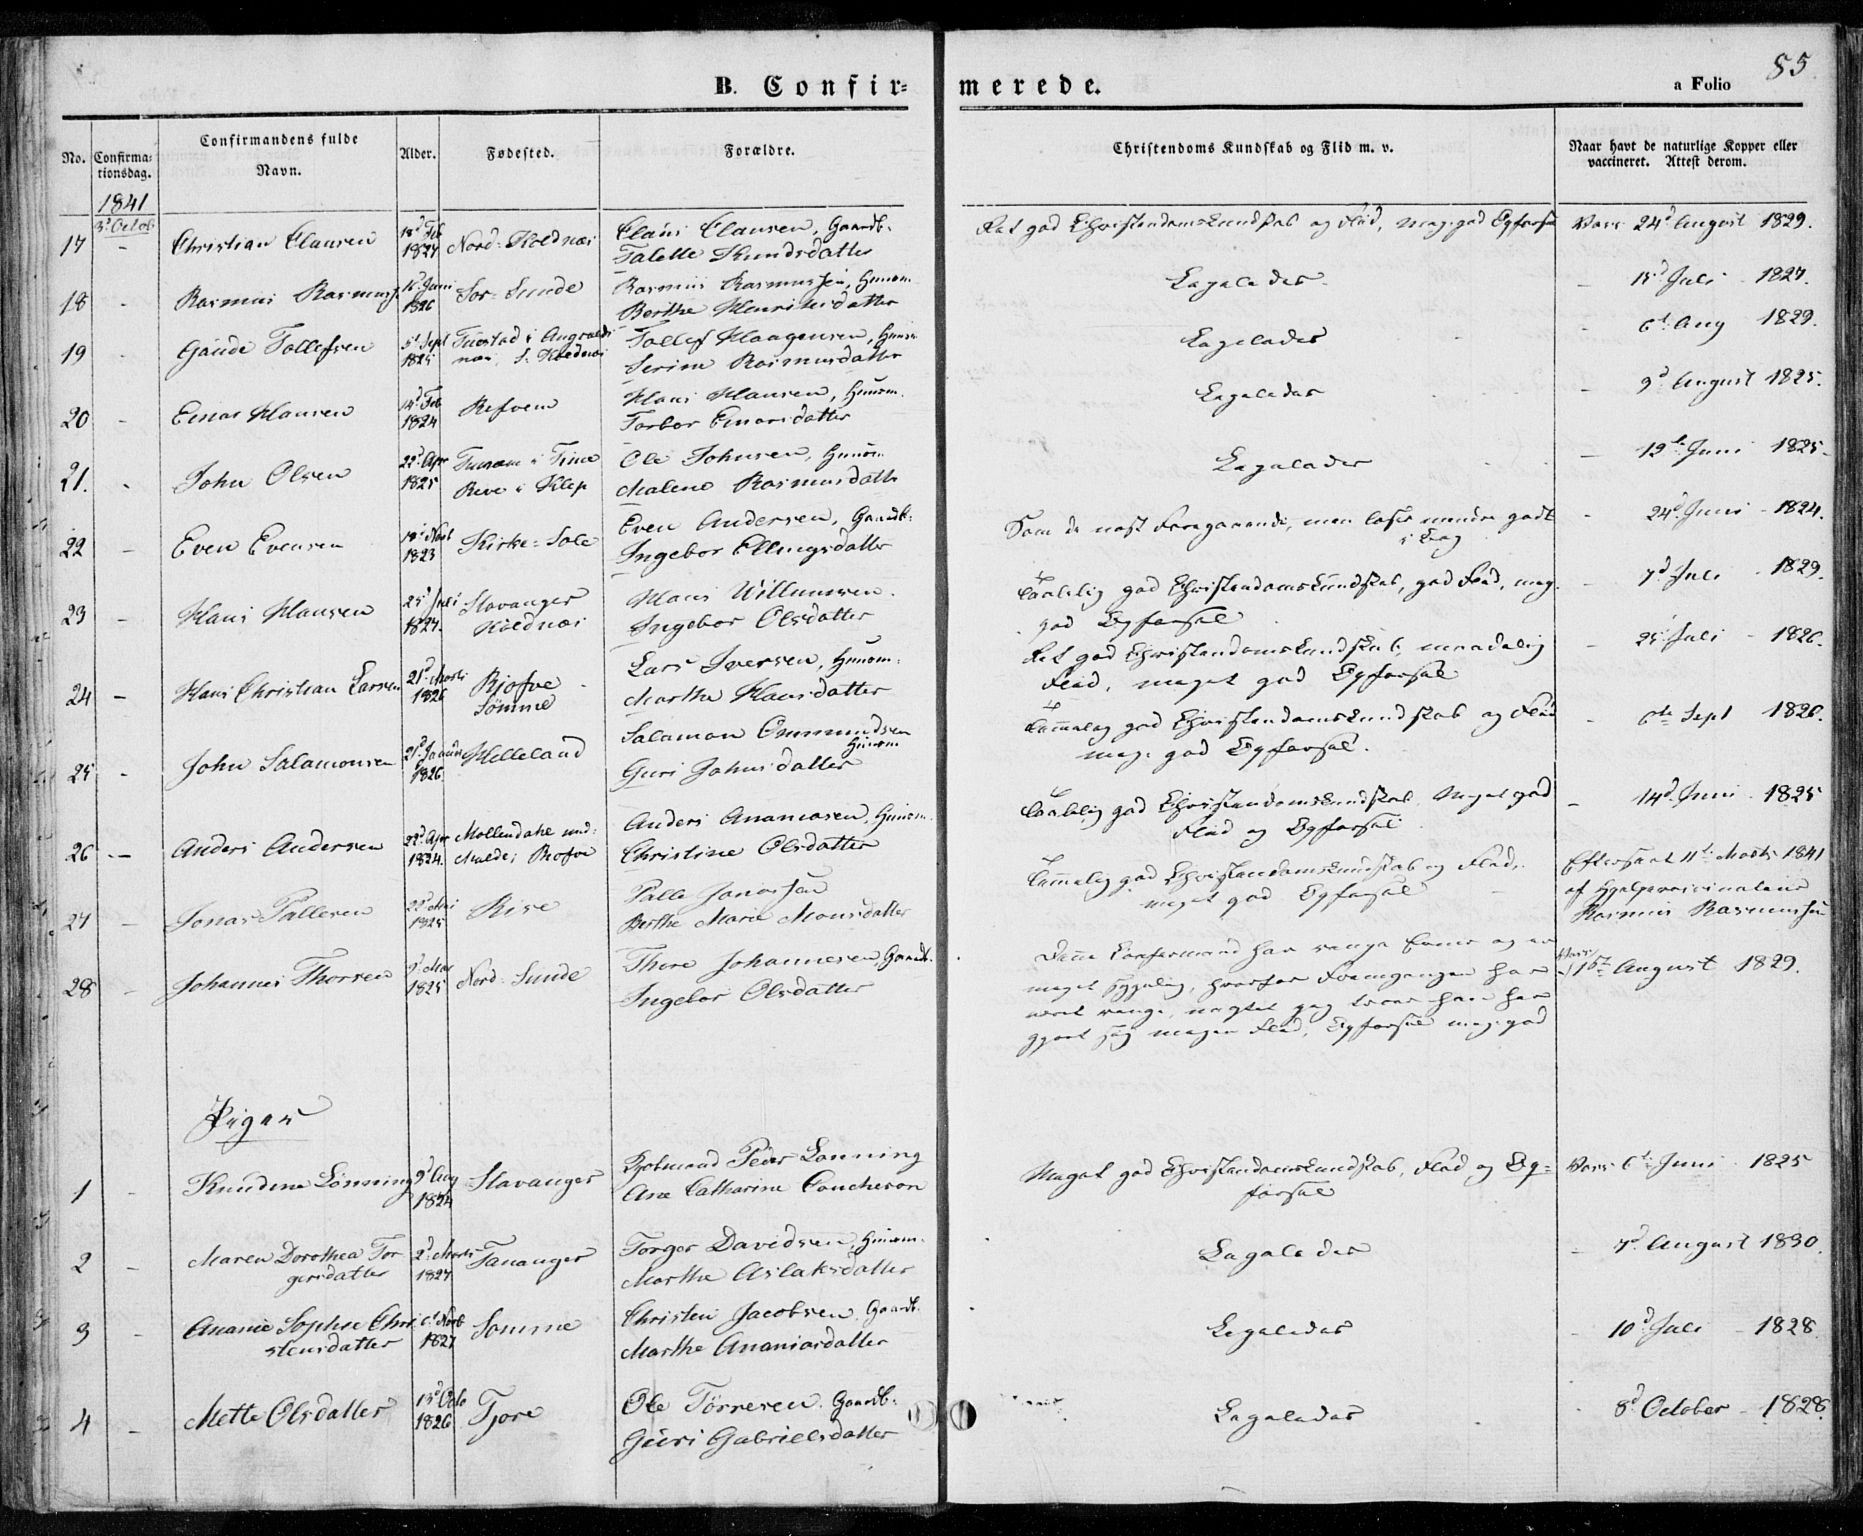 85
B. Confirmerede.
a Folio
No.
Confirmationsdag.
Confirmandens fulde Navn.
Alder.
Fødested.
Forældre.
Christendoms Kundskab og Flid m. v.
Naar havt de naturlige Kopper eller vaccineret. Attest derom.
1841
3d Octob
17 - Christian Clausen 1827 Nord-Koldnæs Claus Clausen, Gaardb.
Talette Knudsdatter
Ret god Christendomskundskab og Flid, meg. god Opførsel
Vacc 24d August 1829.
18 - Rasmus Rasmuss. 1826 Sør-Sunde Rasmus Rasmussen, Huusm.
Berthe Henriksdatter
Ligeledes
- 15d Juli 1827.
19 - Gaude Tollefsen 5d Sept 1825 Tuestad i
Tollef Haagensen, Huusm
Serine Rasmusdatter
Ligeledes
6t Aug 1829.
20 - Einar Hansen 14d Feb 1824 Refvem Hans Hansen, Huusm.
Torbor Einarsdatter
Ligeledes
- 9d August 1825.
21. - John Olsen 22d Apr 1825 i Time
Reve i Klep
Ole Johnsen, Huusm
Malene Rasmusdatt
Ligeledes
- 19t Juni 1825.
22 - Even Evensen 1823 Kirke-Sole Even Andersen, Gaardb.
Ingebor Ellingsdatter
Som de næst Foregaaende, men læser mindre godt
i Bog
- 24d Juni 1824.
23 - Hans Hansen 25d Juli 1827. Stavanger
Koldnæs
Hans Willumsen.
Ingebor Olsdatter
Taalelig god Christendomskundskab, god Flid, meg.
god Opførsel
- 7d Juli 1829.
24 - Hans Christian Larsen 21d Marts 1826 Rjofve
Sømme
Lars Iversen, Huusm.
Marthe Hansdatter
Ret god Christendomskundskab, maadelig
Flid, meget god Opførsel
- 25 Juli 1826.
25 - John Salamonsen 1826 Helleland Salamon Ommundsen
Huusm
Guri Johnsdatter
Temmelig god Christendomskundskab og Flid
meg. god Opførsel.
- 6te Sept 1826.
26 - Anders Andersen 22d Apr 1824. Møllendahl und.
Malde i
Anders Ananiasen, Huusm.
Christine Olsdatter
Taalelig god Christendomskundskab, Meget god
Flid og Opførsel
- 14d Juni 1825
27 - Jonas Pallesen 1825 Rise Palle Jonassen
Berthe Marie Monsdatter
Temmelig god Christendomskundskab og Flid.
meget god Opførsel
Efterseet 11te Marts 1841
af
Rasmus Rasmussen
28 - Johannes Thorsen 1825 Nord-Sunde Thore Johannesen, Gaardb.
Ingebor Olsdatter
Denne Confirmand har ringe Evner og er
meget sygelig, hvorfor Fremgangen har
været ringe, uagtet jeg troer han har
gjort sig megen Flid. Opførsel meg. god
Vacc
16de August 1829.
Piger
1 Knudine Lønning 9d Aug 1824 Stavanger Kjøbmand Peder Lønning
Ane Catharine Coucheron
Meget god Christendomskundskab, Flid og Op-
førsel
Vacc 6t Juni 1825
2 - Maren Dorothea Tor
gersdatter
2d Marts 1827 Tananger Torger Davidsen, Huusm.
Marthe Aslaksdatter
Ligeledes
- 7d August 1830.
3 - Ananie Sophie Chri
stensdatter
6d Novb 1827 Sømme Christen Jacobsen, Gaardb.
Marthe Ananiasdatter
Ligeledes
- 10d Juli 1828
4 - Mette Olsdatter 13d Octo 1826 Tjore Ole Tørresen, Gaardb.
Guri Gabrielsdatter
Ligeledes
8d October 1828.